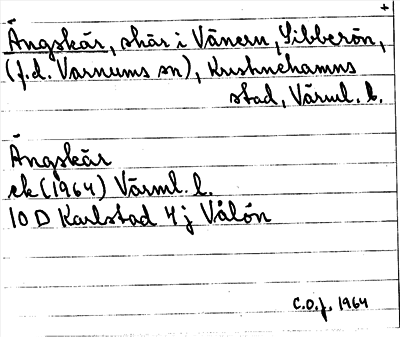 +
Ängskär, skär i Vänern, Sibberön,
(f.d. Varnums sn), Kristinehamns
stad, Värml. l.
Ängskär
ek (1964) Värml. l.
10 D Karlstad 4j Vålön
C.O.J. 1964